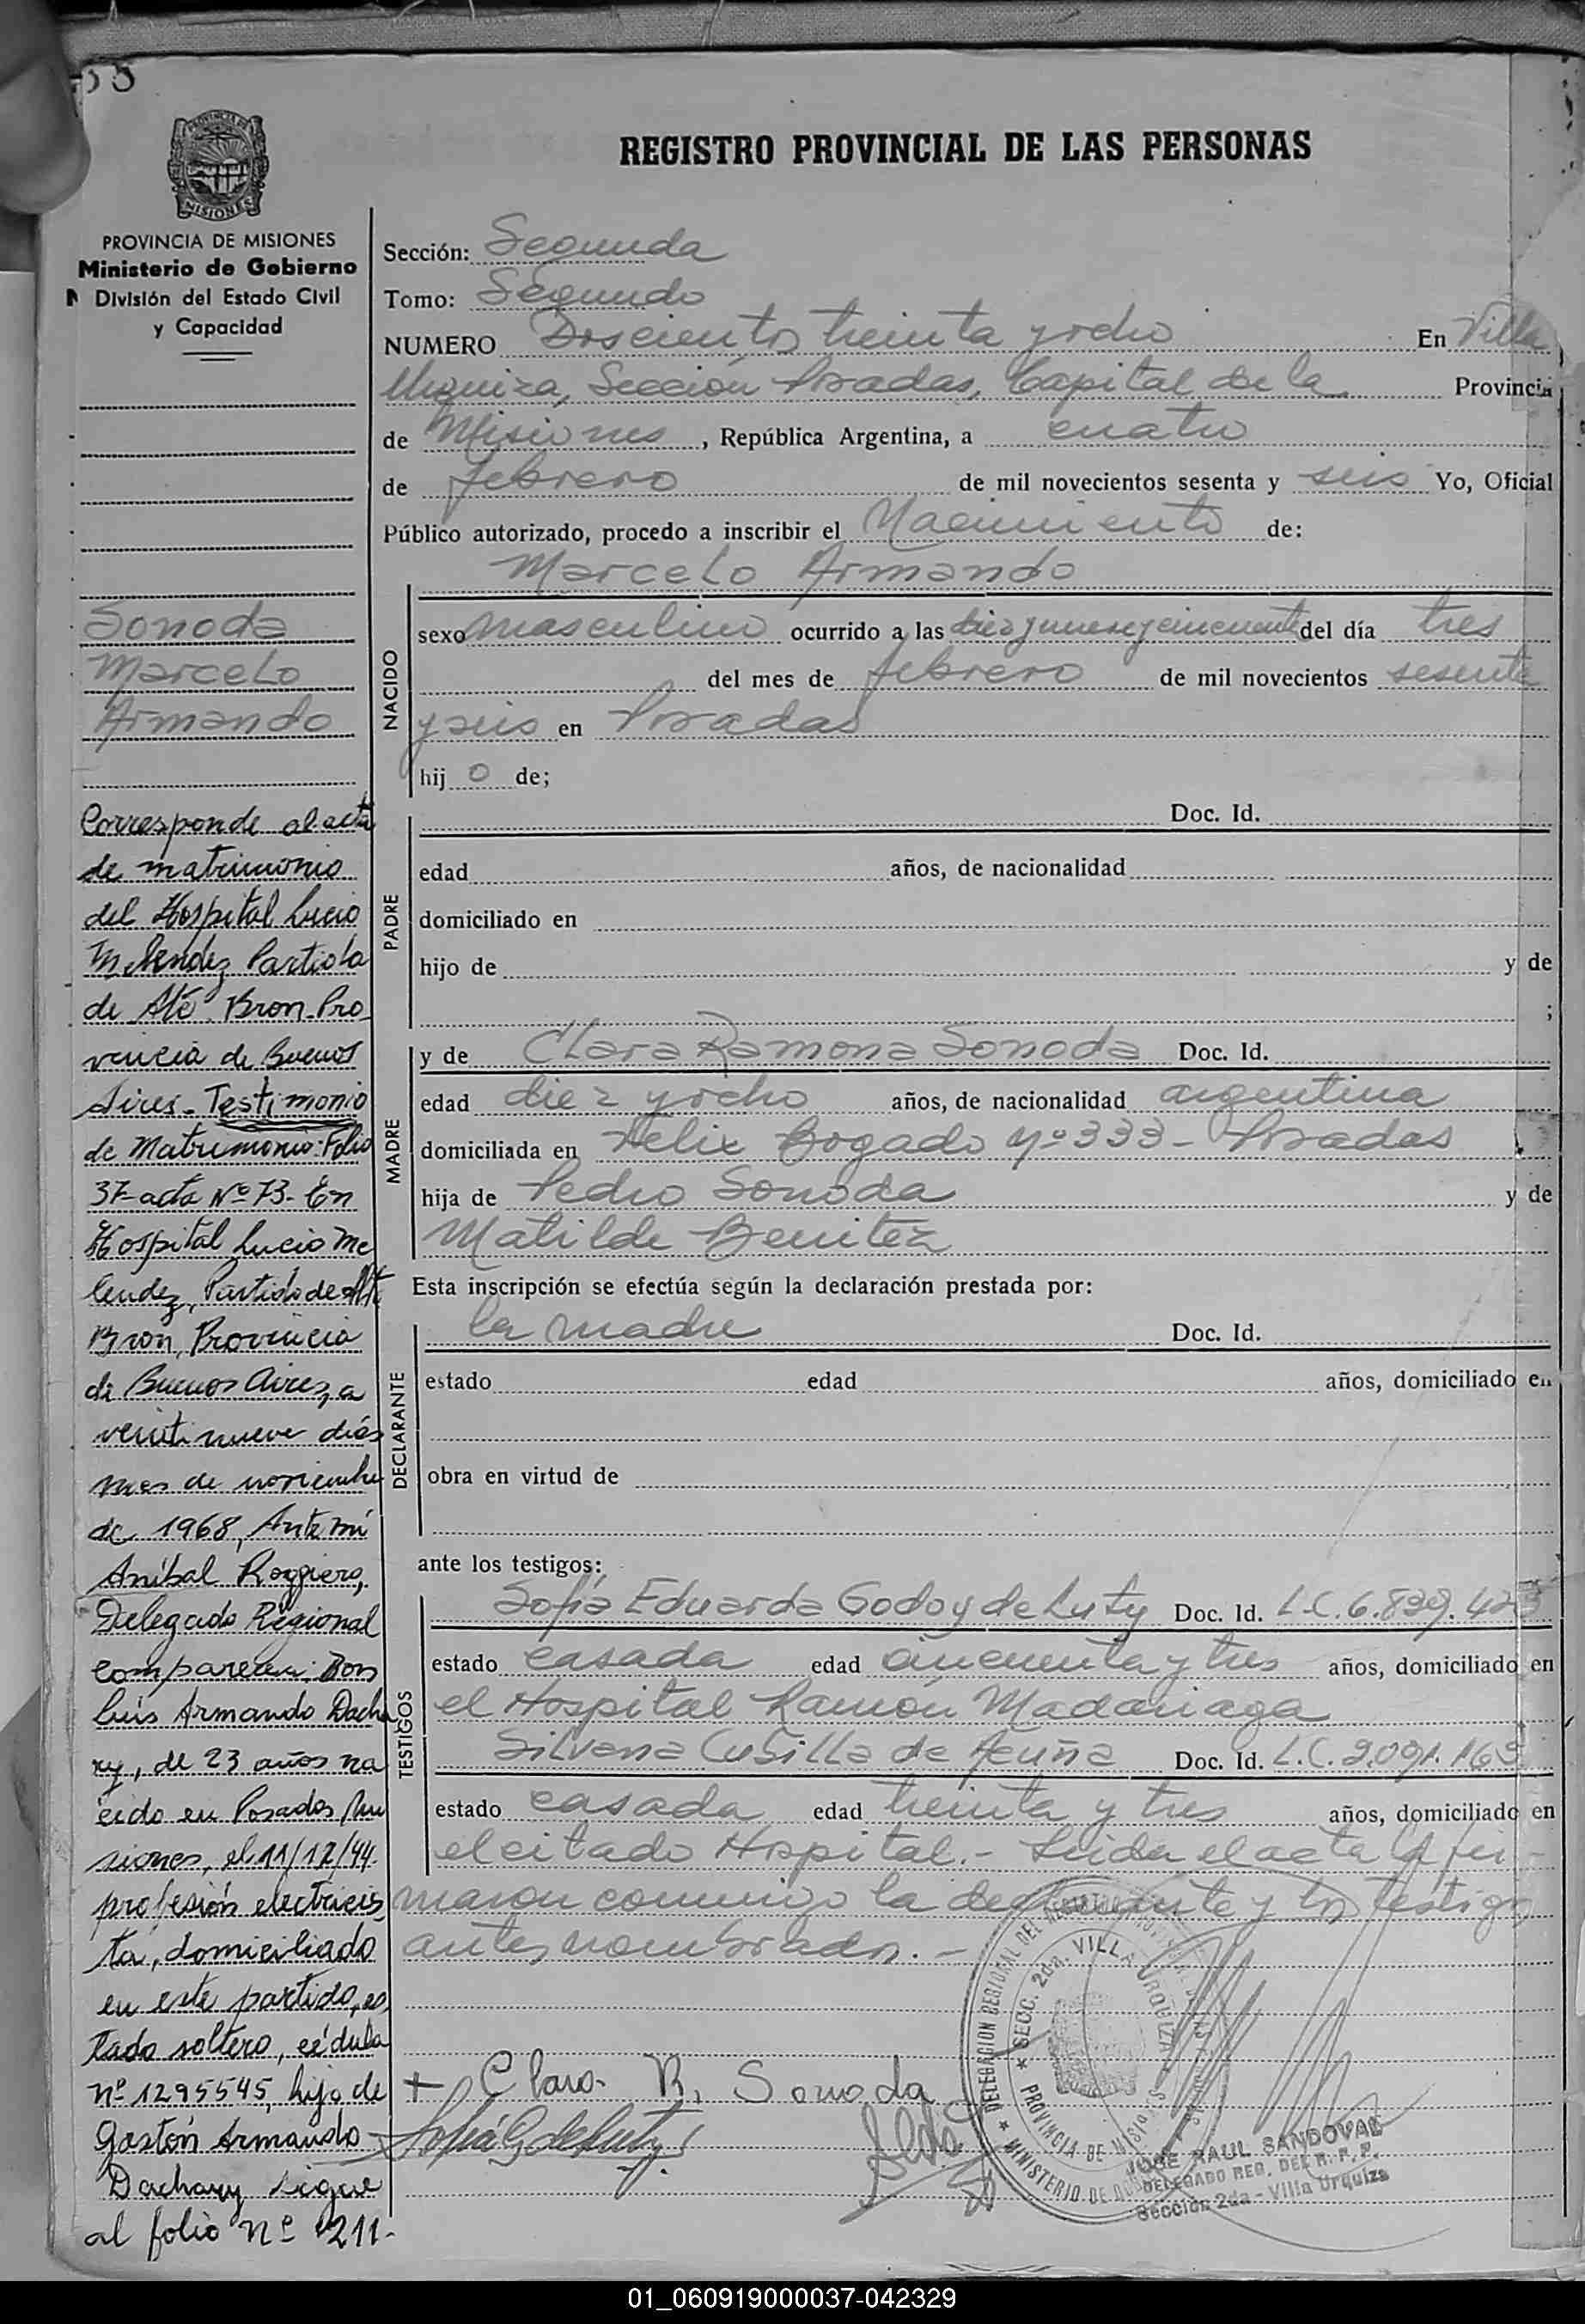 REGISTRO PROVINCIAL DE LAS PERSONAS
MISIONES
PROVINCIA DE MISIONES
Ministerio de Gobierno
División del Estado Civil
y Capacidad
Sonoda
Marcelo
Armando
Corresponde al acta
de matrimonio
del Hospital Lucio
Melendez Partido
de Ate. Bron Pro
vincia de Buenos
Aires. Testimonio
de Matrimonio: Folio
37- acta Nº 73. En
Hospital Lucio Me
lendez, Partido de Alte
Bron, Provincia
de Buenos Aires, a
veintinueve días
mes de noviembre
de 1968, Ante mí
Aníbal Roggiero,
Delegado Regional
comparecen: Don
Luis Armando Dacha
ry, de 23 años na
cido en Posadas Mi
siones, el 11/12/44.
profesión electricis
ta, domiciliado
en este partido, es
tado soltero, cédula
nº 1295545, hijo de
Gastón Armando
Dachary sigue
al folio nº 211-
Sección: Segunda
Tomo: Segundo
NUMERO Doscientos treinta y ocho En Villa
Urquiza, Sección Posadas, Capital de la Provincia
de Misiones, República Argentina, a cuatro
de febrero de mil novecientos sesenta y seis Yo, Oficial
Público autorizado, procedo a inscribir el Nacimiento de:
Marcelo Armando
NACIDO
sexo masculino ocurrido a las diez y nueve y cincuenta del día tres
del mes de febrero de mil novecientos sesenta
y seis en Posadas
hij o de;
PADRE
Doc. Id.
edad años, de nacionalidad
domiciliado en
hijo de y de
;
MADRE
y de Clara Ramona Sonoda Doc. Id.
edad diez y ocho años, de nacionalidad argentina
domiciliada en Felix Bogado Nº 333 - Posadas
hija de Pedro Sonoda y de
Matilde Benitez
Esta inscripción se efectúa según la declaración prestada por:
DECLARANTE
la madre Doc. Id.
estado edad años, domiciliado en
obra en virtud de
ante los testigos:
TESTIGOS
Sofía Eduarda Godoy de Luty Doc. Id. L.C. 6.839.423
estado casada edad cincuenta y tres años, domiciliado en
el Hospital Ramón Madariaga
Silvana Cubilla de Acuña Doc. Id. L.C. 2.091.163
estado casada edad treinta y tres años, domiciliado en
el citado Hospital.- Leida el acta la fir-
maron conmigo la declarante y los testigos
antes nombrados.-
+ Clara R. Sonoda
Sofía G de Luty
DELEGACION REGIONAL DEL REGISTRO
SECC. 2da. VILLA URQUIZA
PROVINCIA DE MISIONES
MINISTERIO DE
JOSE RAUL SANDOVAL
DELEGADO REG. DEL R. P. P.
Sección 2da - Villa Urquiza
01_060919000037-042329